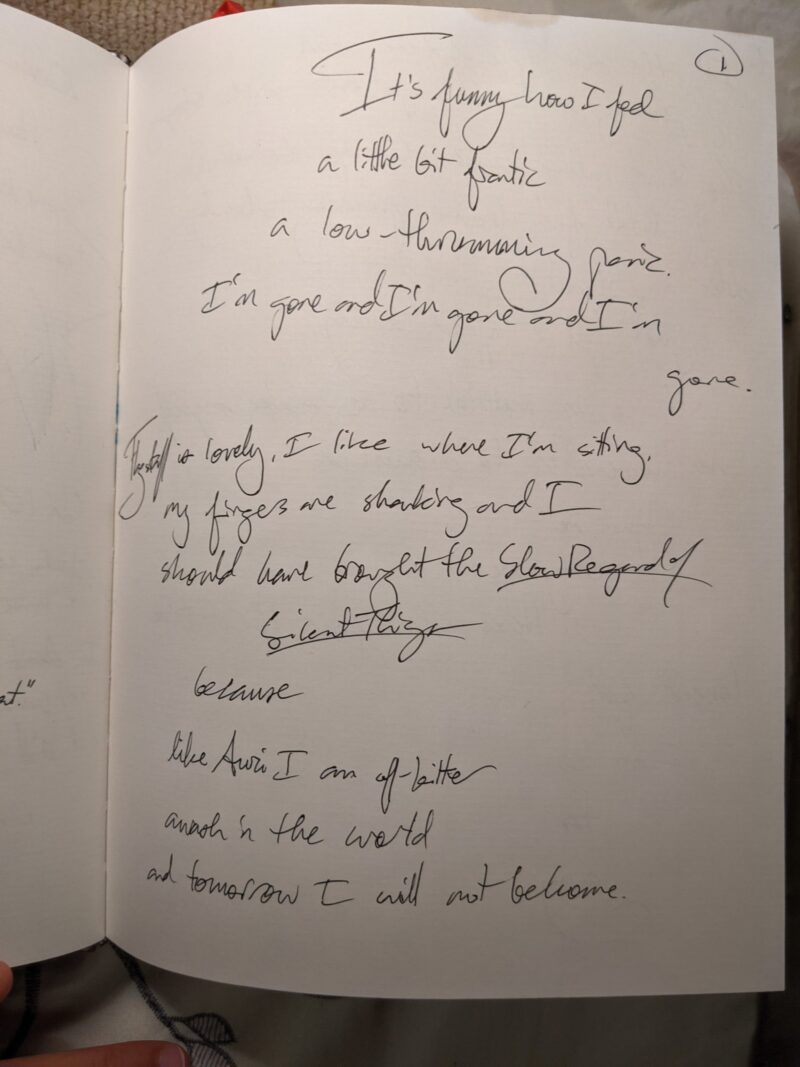 1
It's funny how I feel
a little bit frantic
a low-thrumming panic.
I'm gone and I'm gone and I'm
gone.
The staff is lovely, I like where I'm sitting,
my fingers are shaking and I
should have brought the Slow Regard of
Silent Things
because
at."
like Auri I am off-kilter
awash in the world
and tomorrow I will not be home.